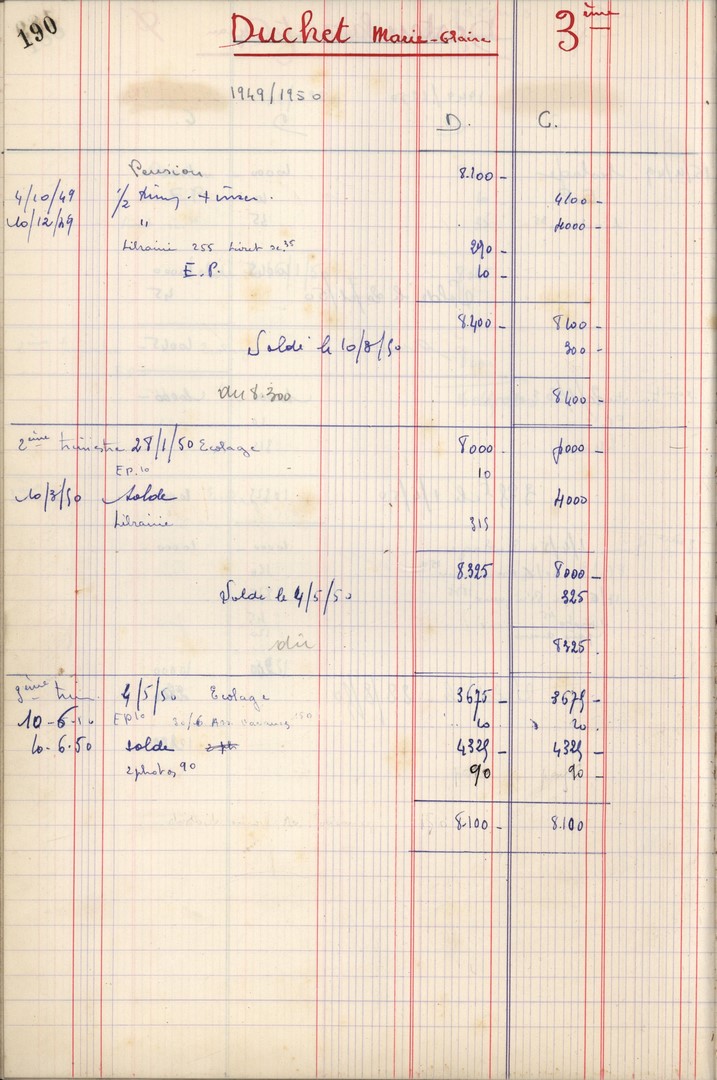 190
Duchet Marie-Claire 3ème
1949/1950
D. C.
Pension 8.100 -
4/10/49 1/2 4100 -
10/12/49 " 4000 -
Librairie 255 Livret sc. 35 290 -
E.P. 10 -
8.400 - 8100 -
Soldé le 10/3/50 300 -
du 8.300 8400 -
2ème trimestre 28/1/50 Ecolage 8000 - 4000 -
EP.10 10
10/3/50 solde 4000
Librairie 315
8.325 8000 -
Soldé le 4/5/50 325
dû 8325.
3ème trim. 4/5/50 Ecolage 3675 - 3675 -
10-6-50 EP10 20/6 Ass. 150 10 20.
10-6.50 solde 4325 - 4325 -
2 photos 90 90 90 -
8.100 - 8.100